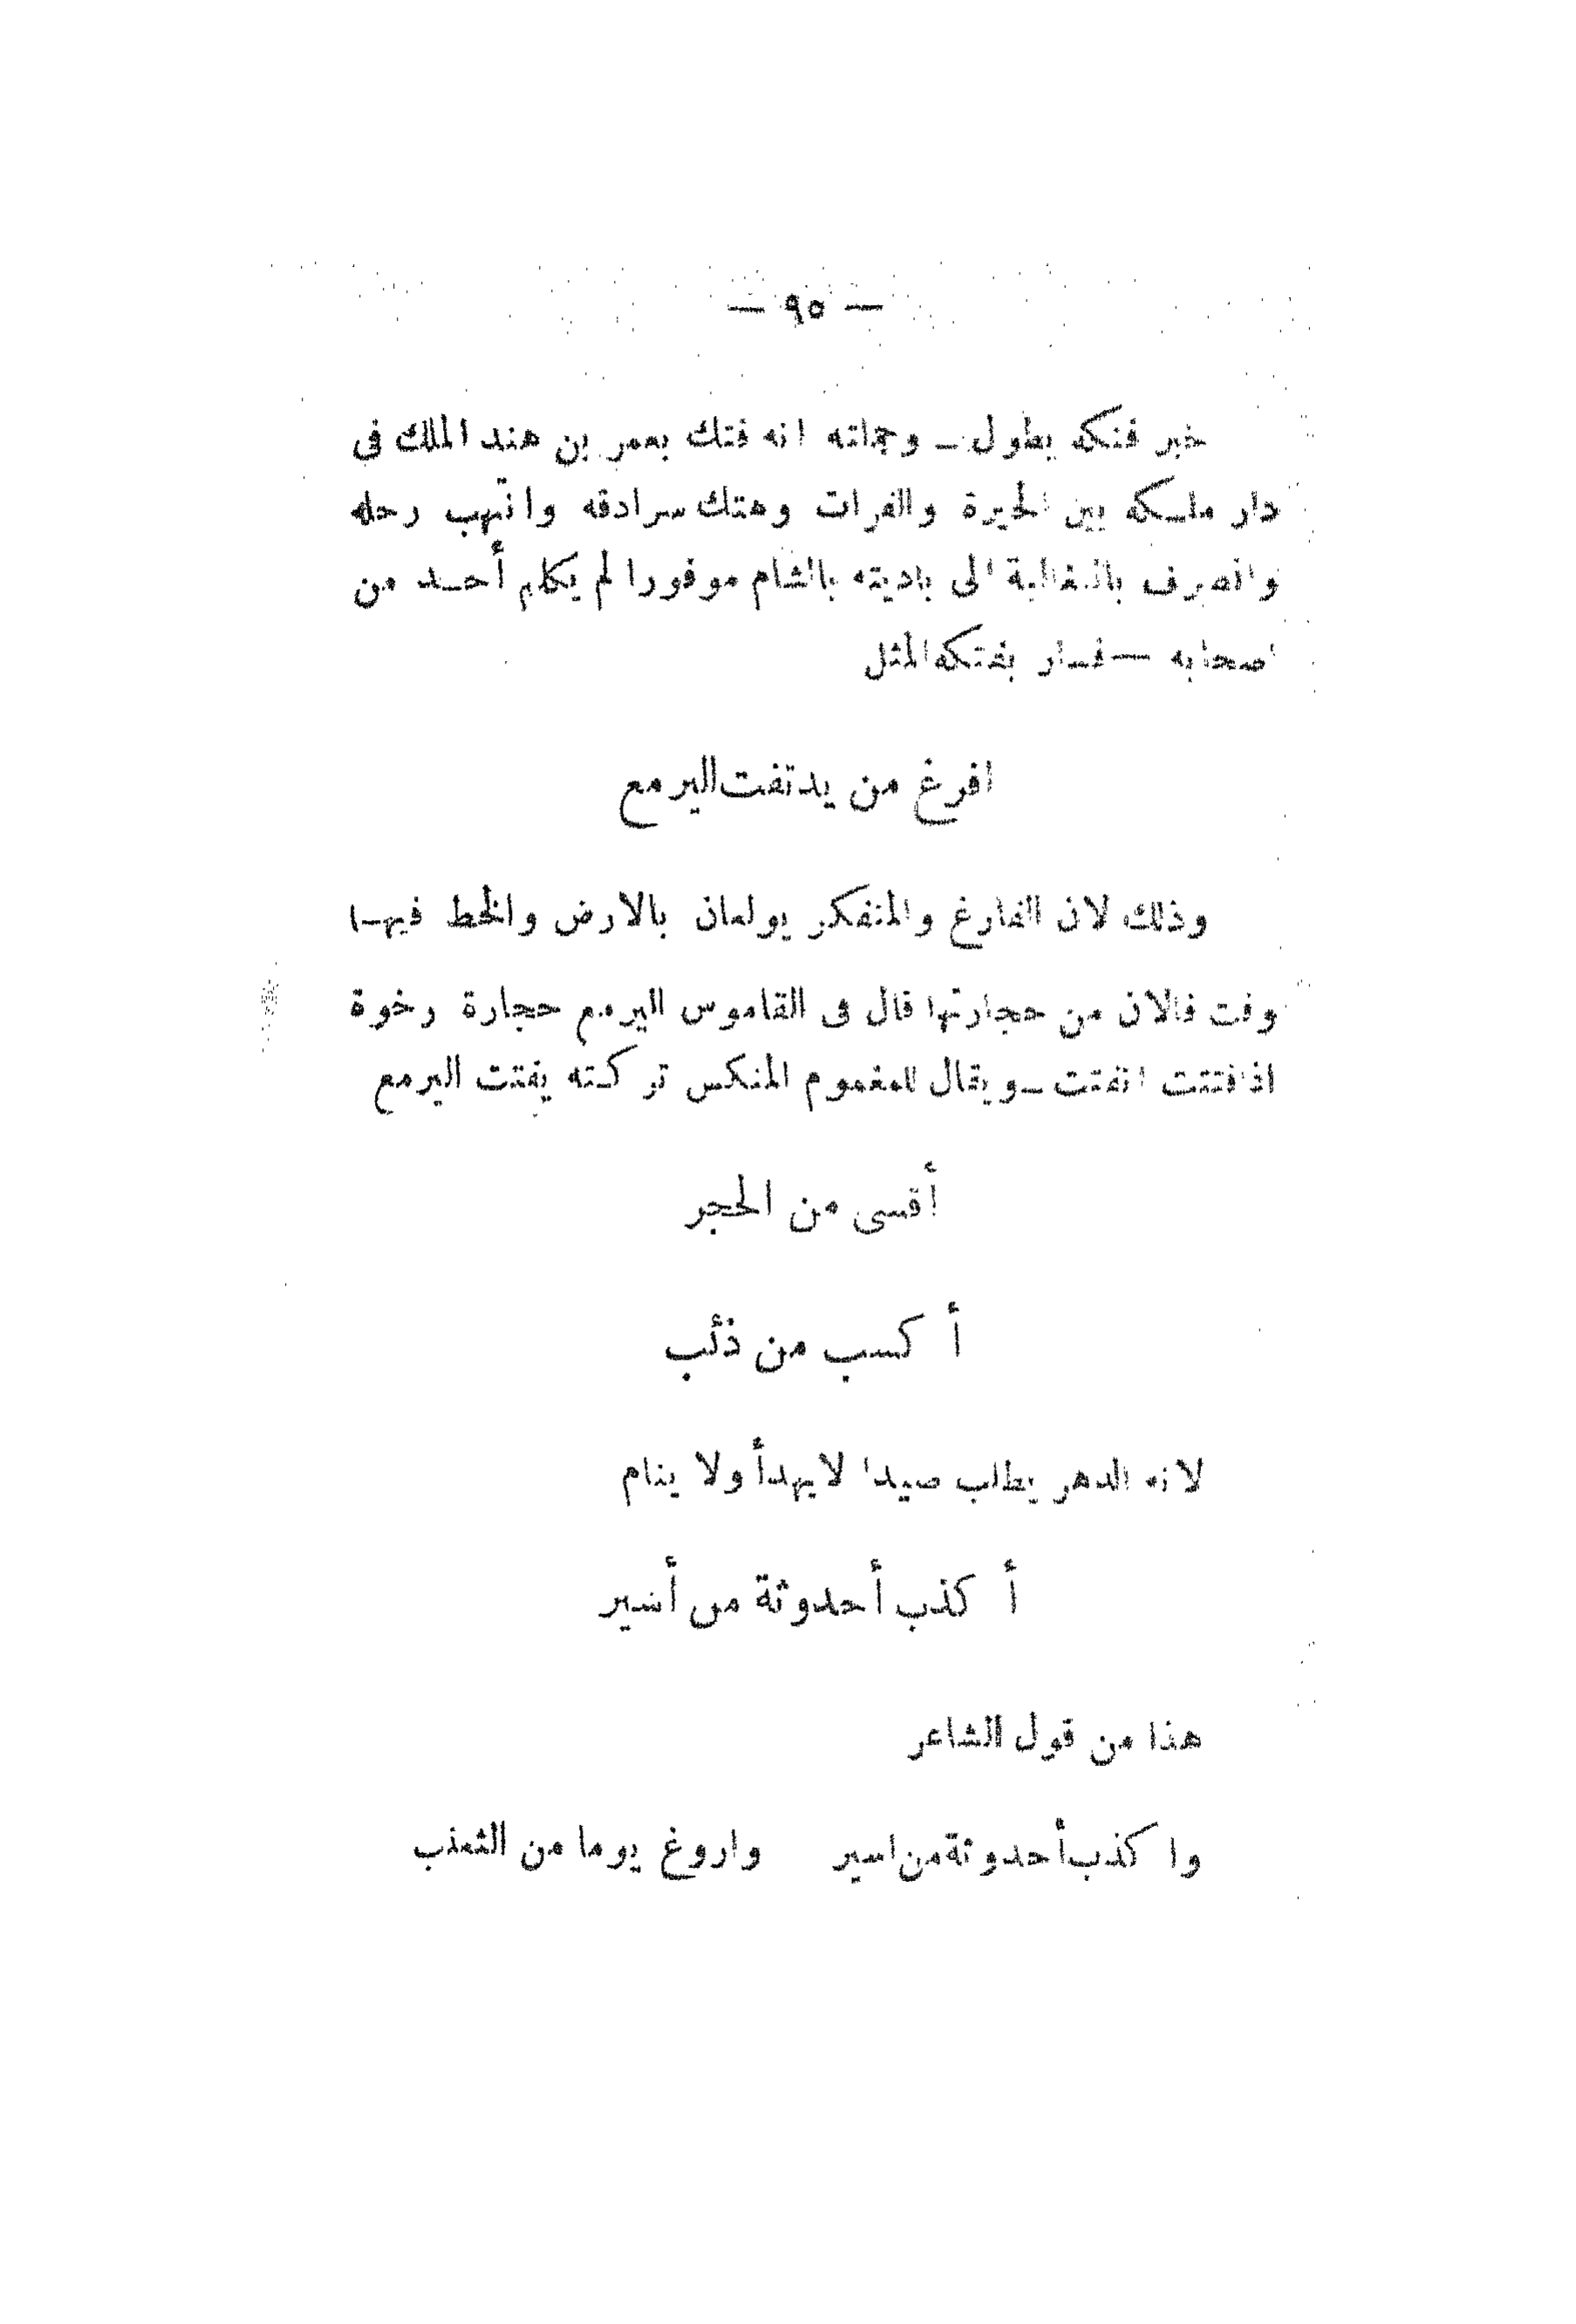 — ٩٥ —
خبر فتكه يطول — وجملته انه فتك بعمر بن هند الملك فى
دار ملكه بين الحيرة والفرات وهتك سرادقه وانتهب رحله
وانصرف بالتغالبة الى باديته بالشام موفورا لم يكلم أحد من
اصحابه — فسار بفتكه المثل
افرغ من يد تفت اليرمع
وذلك لان الفارغ والمتفكر يولعان بالارض والخط فيها
وفت فالان من حجارتها قال فى القاموس اليرمع حجارة رخوة
اذا فتتت انفتت — ويقال للمغموم المنكس تركته يفتت اليرمع
أقسى من الحجر
أكسب من ذئب
لانه الدهر يطلب صيدا لايهدأ ولا ينام
أكذب أحدوثة من أسير
هذا من قول الشاعر
واكذب أحدوثة من اسير واروغ يوما من الثعلب